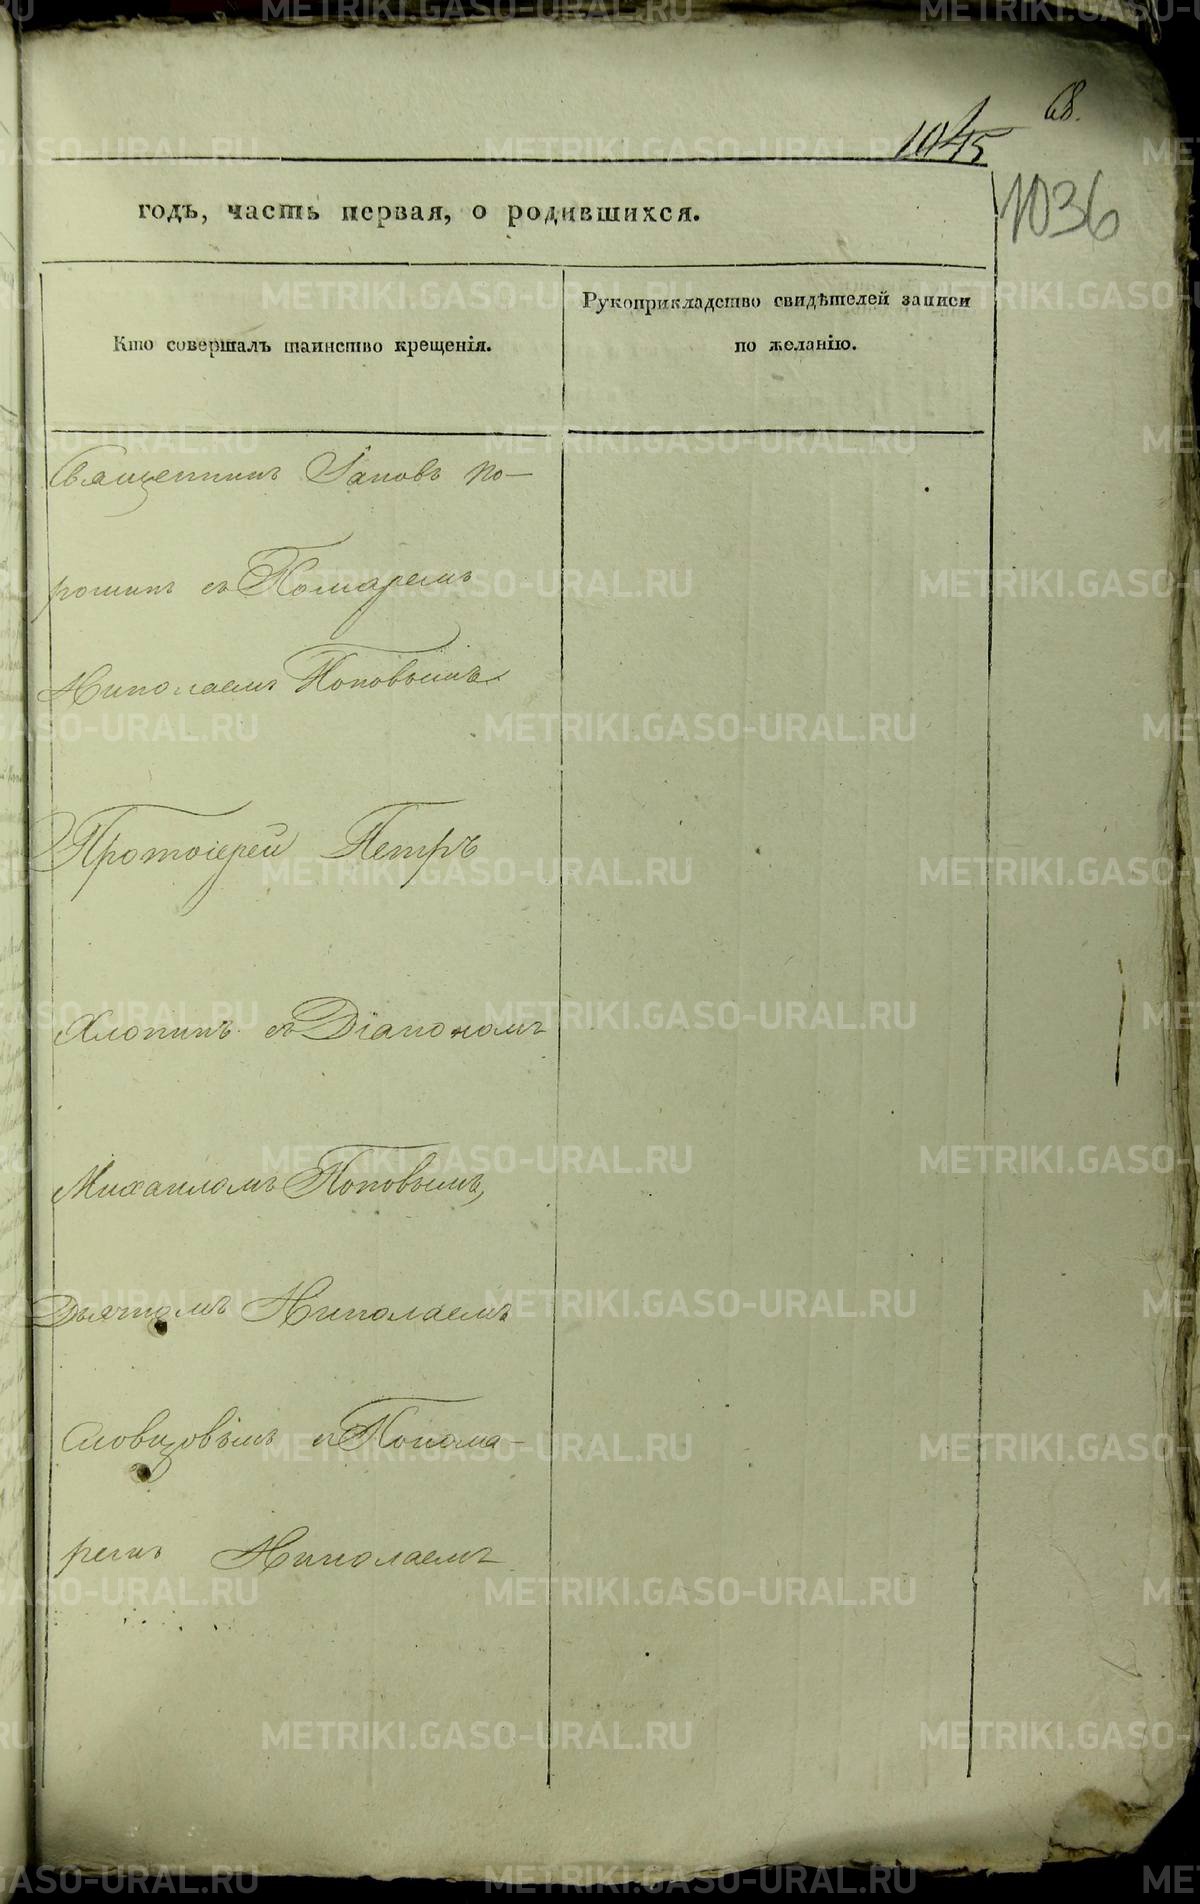 68.
1045
1036
годъ, часть первая, о родившихся.
Кто совершалъ таинство крещенія.
Рукоприкладство свидѣтелей записи
по желанію.
Священникъ Іаковъ По-
рошинъ съ
Николаемъ Поповымъ.
Протоіерей Петръ
Хлопинъ съ Діакономъ
Михаиломъ Поповымъ,
Дьячкомъ Николаемъ
Словцовымъ и Понома-
ремъ Николаемъ
METRIKI.GASO-URAL.RU